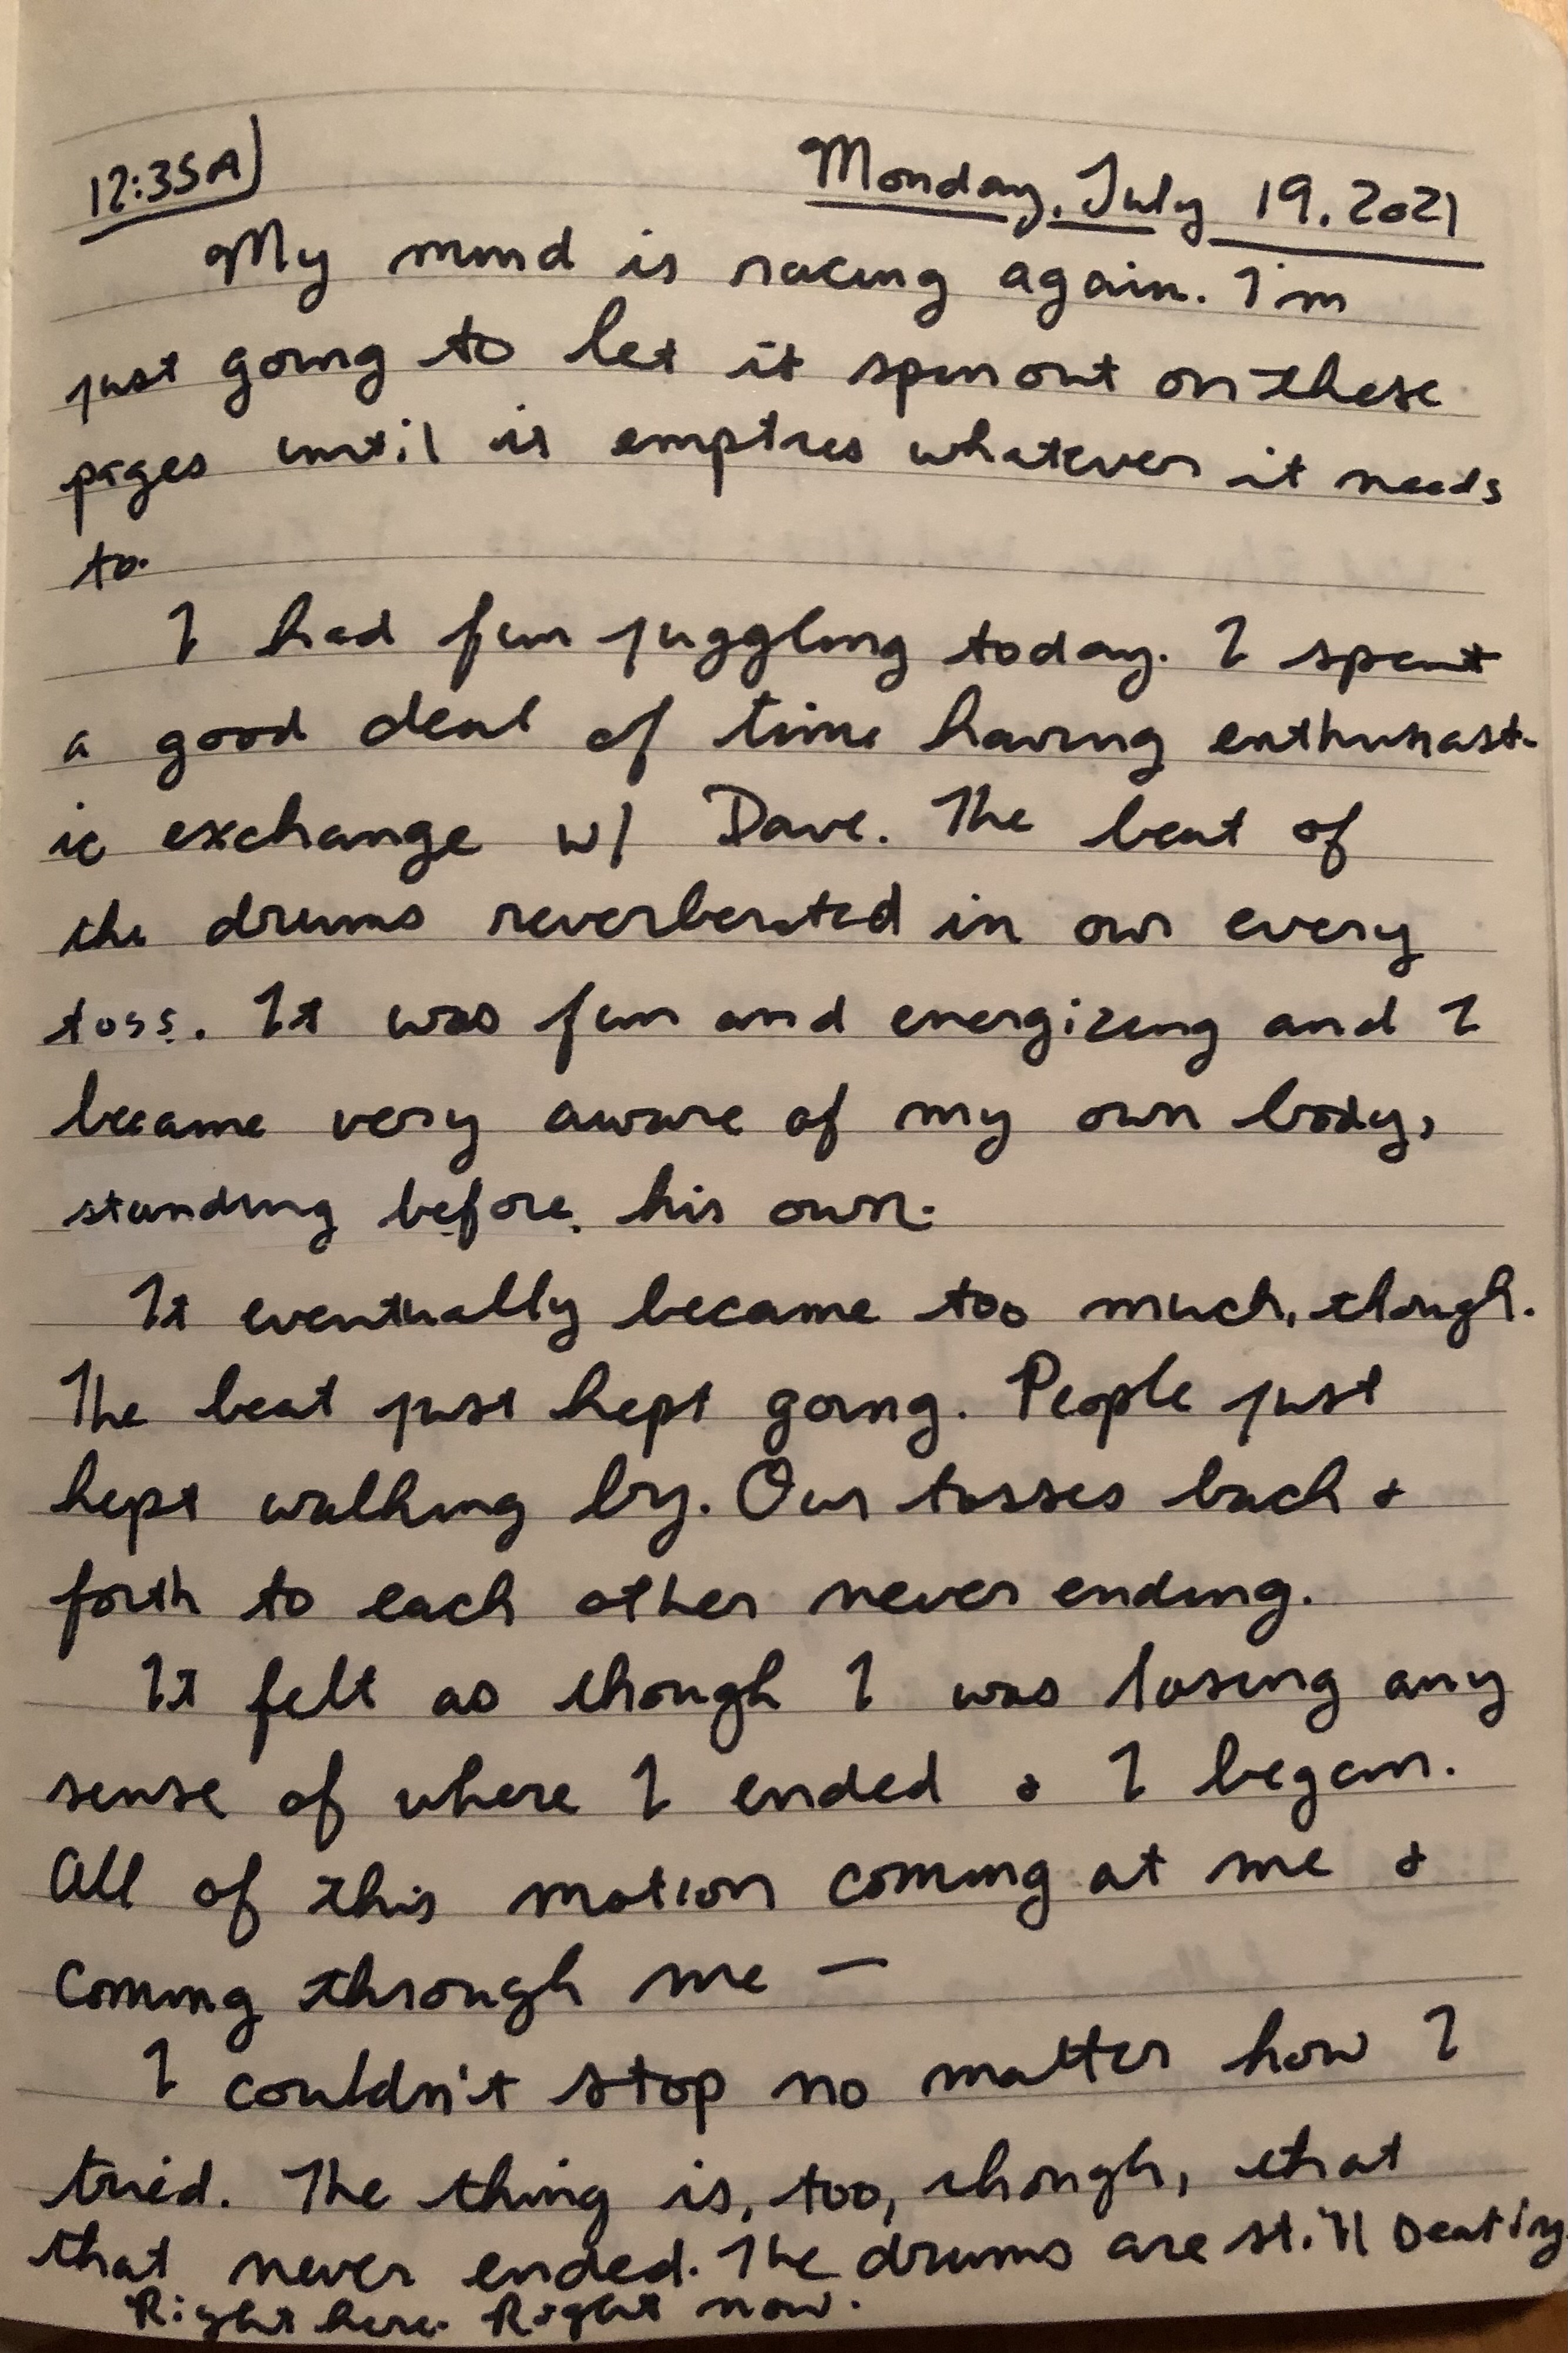 12:35A
Monday, July 19, 2021
My mind is racing again. I'm
just going to let it spin out on these
pages until is empties whatever it needs
to.
I had fun juggling today. I spent
a good deal of time having enthusiast-
ic exchange w/ Dave. The beat of
the drums reverberated in our every
toss. It was fun and energizing and I
became very aware of my own body,
standing before his own.
It eventually became too much, though.
The beat just kept going. People just
kept walking by. Our tosses back &
forth to each other never ending.
It felt as though I was losing any
sense of where I ended & I began.
All of this motion coming at me &
coming through me —
I couldn't stop no matter how I
tried. The thing is, too, though, that
that never ended. The drums are still beating
Right here. Right now.